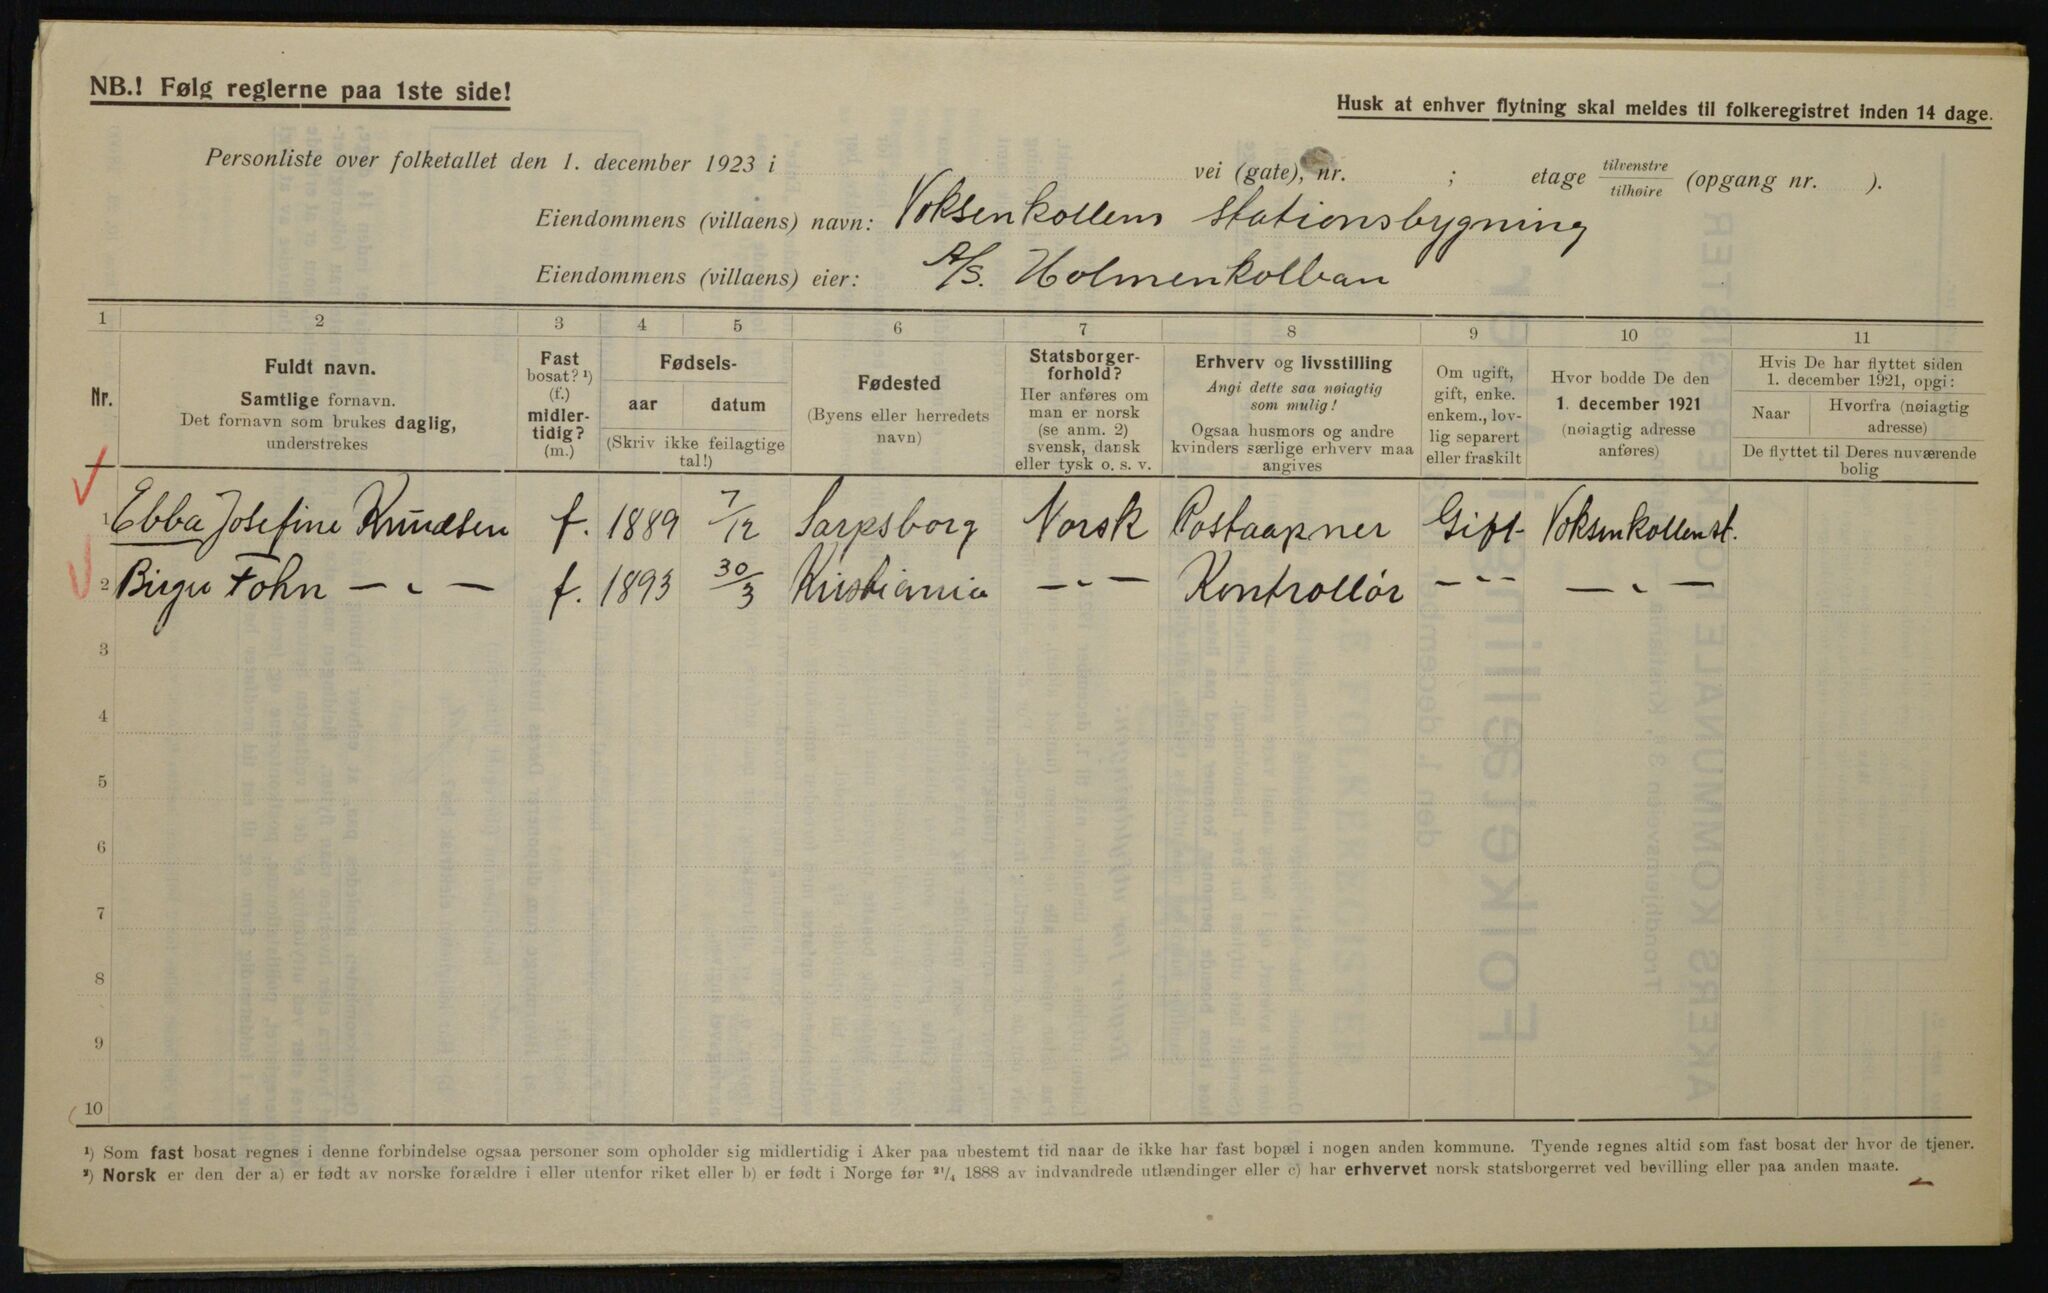 NB.! Følg reglerne paa 1ste side!
Husk at enhver flytning skal meldes til folkeregistret inden 14 dage.
Personliste over folketallet den 1. december 1923 i vei (gate), nr. ; etage tilvenstre / tilhøire (opgang nr. ).
Eiendommens (villaens) navn: Voksenkollens stationsbygning
Eiendommens (villaens) eier: A/S. Holmenkolban
1 2 3 4 5 6 7 8 9 10 11
Nr.
Fuldt navn.
Samtlige fornavn.
Det fornavn som brukes daglig,
understrekes
Fast
bosat? ¹)
(f.)
midler-
tidig?
(m.)
Fødsels-
aar datum
(Skriv ikke feilagtige
tal!)
Fødested
(Byens eller herredets
navn)
Statsborger-
forhold?
Her anføres om
man er norsk
(se anm. 2)
svensk, dansk
eller tysk o. s. v.
Erhverv og livsstilling
Angi dette saa nøiagtig
som mulig!
Ogsaa husmors og andre
kvinders særlige erhverv maa
angives
Om ugift,
gift, enke.
enkem., lov-
lig separert
eller fraskilt
Hvor bodde De den
1. december 1921
(nøiagtig adresse
anføres)
Hvis De har flyttet siden
1. december 1921, opgi:
Naar Hvorfra (nøiagtig
adresse)
De flyttet til Deres nuværende
bolig
1 Ebba Josefine Knudsen f. 1889 7/12 Sarpsborg Norsk Postaapner Gift Voksenkollen st.
2 Birger John — „ — f. 1893 30/3 Kristiania — „ — Kontrollør — „ — — „ —
3
4
5
6
7
8
9
10
¹) Som fast bosat regnes i denne forbindelse ogsaa personer som opholder sig midlertidig i Aker paa ubestemt tid naar de ikke har fast bopæl i nogen anden kommune. Tyende regnes altid som fast bosat der hvor de tjener.
²) Norsk er den der a) er født av norske forældre i eller utenfor riket eller b) er født i Norge før ²¹/₄ 1888 av indvandrede utlændinger eller c) har erhvervet norsk statsborgerret ved bevilling eller paa anden maate.